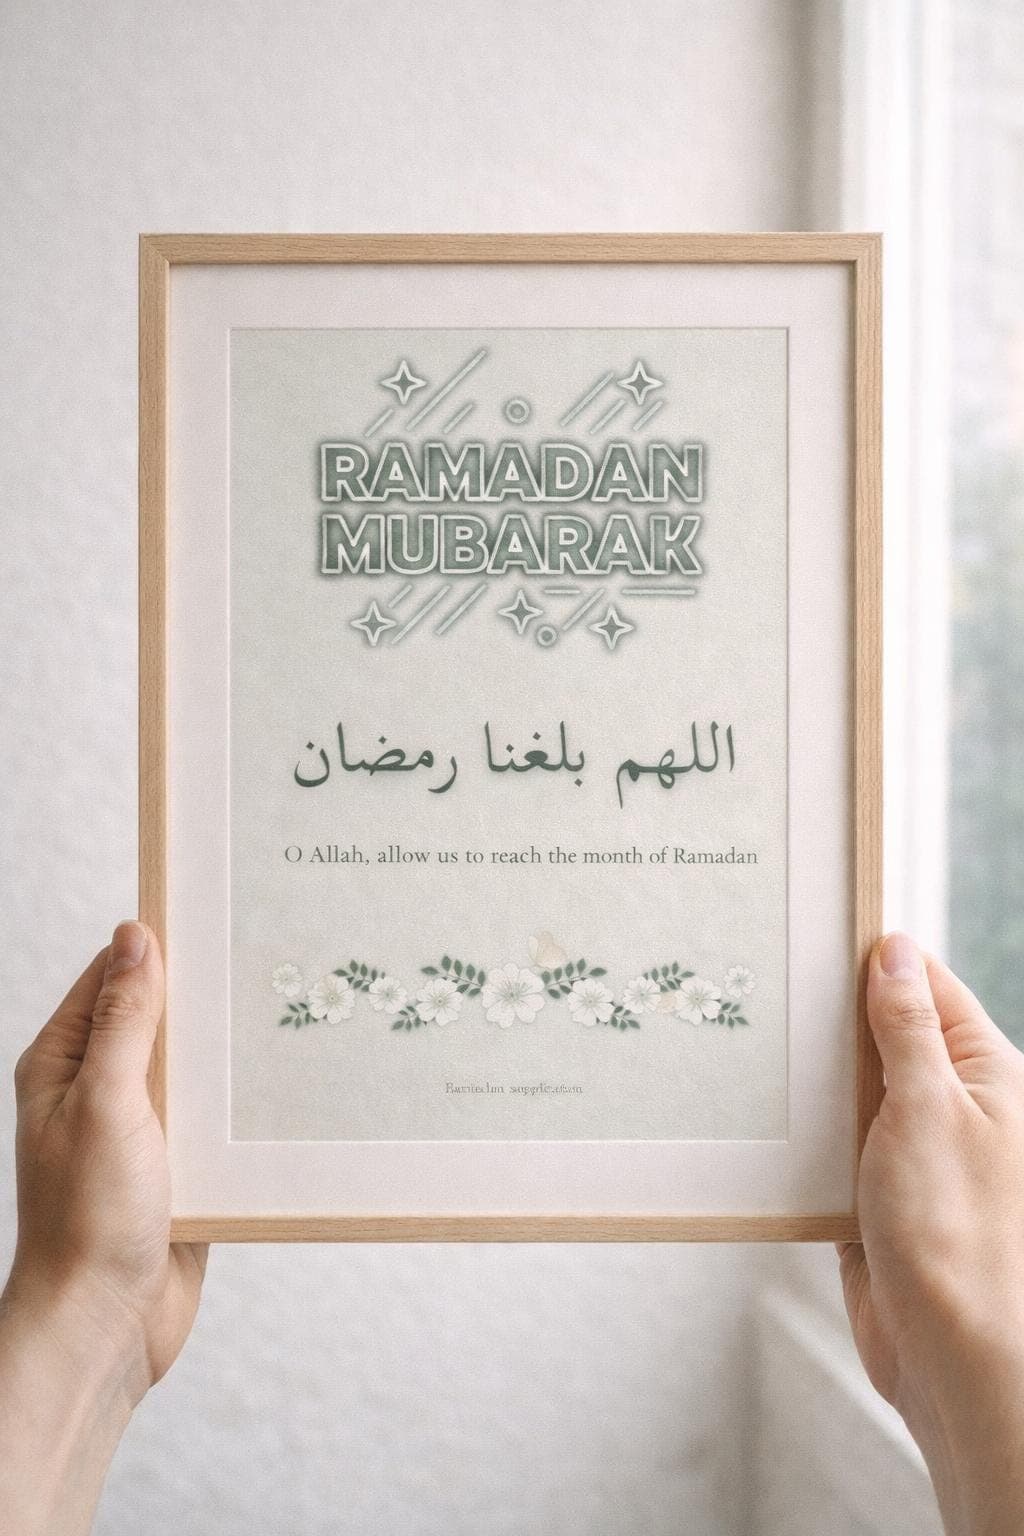 RAMADAN
MUBARAK
اللهم بلغنا رمضان
O Allah, allow us to reach the month of Ramadan